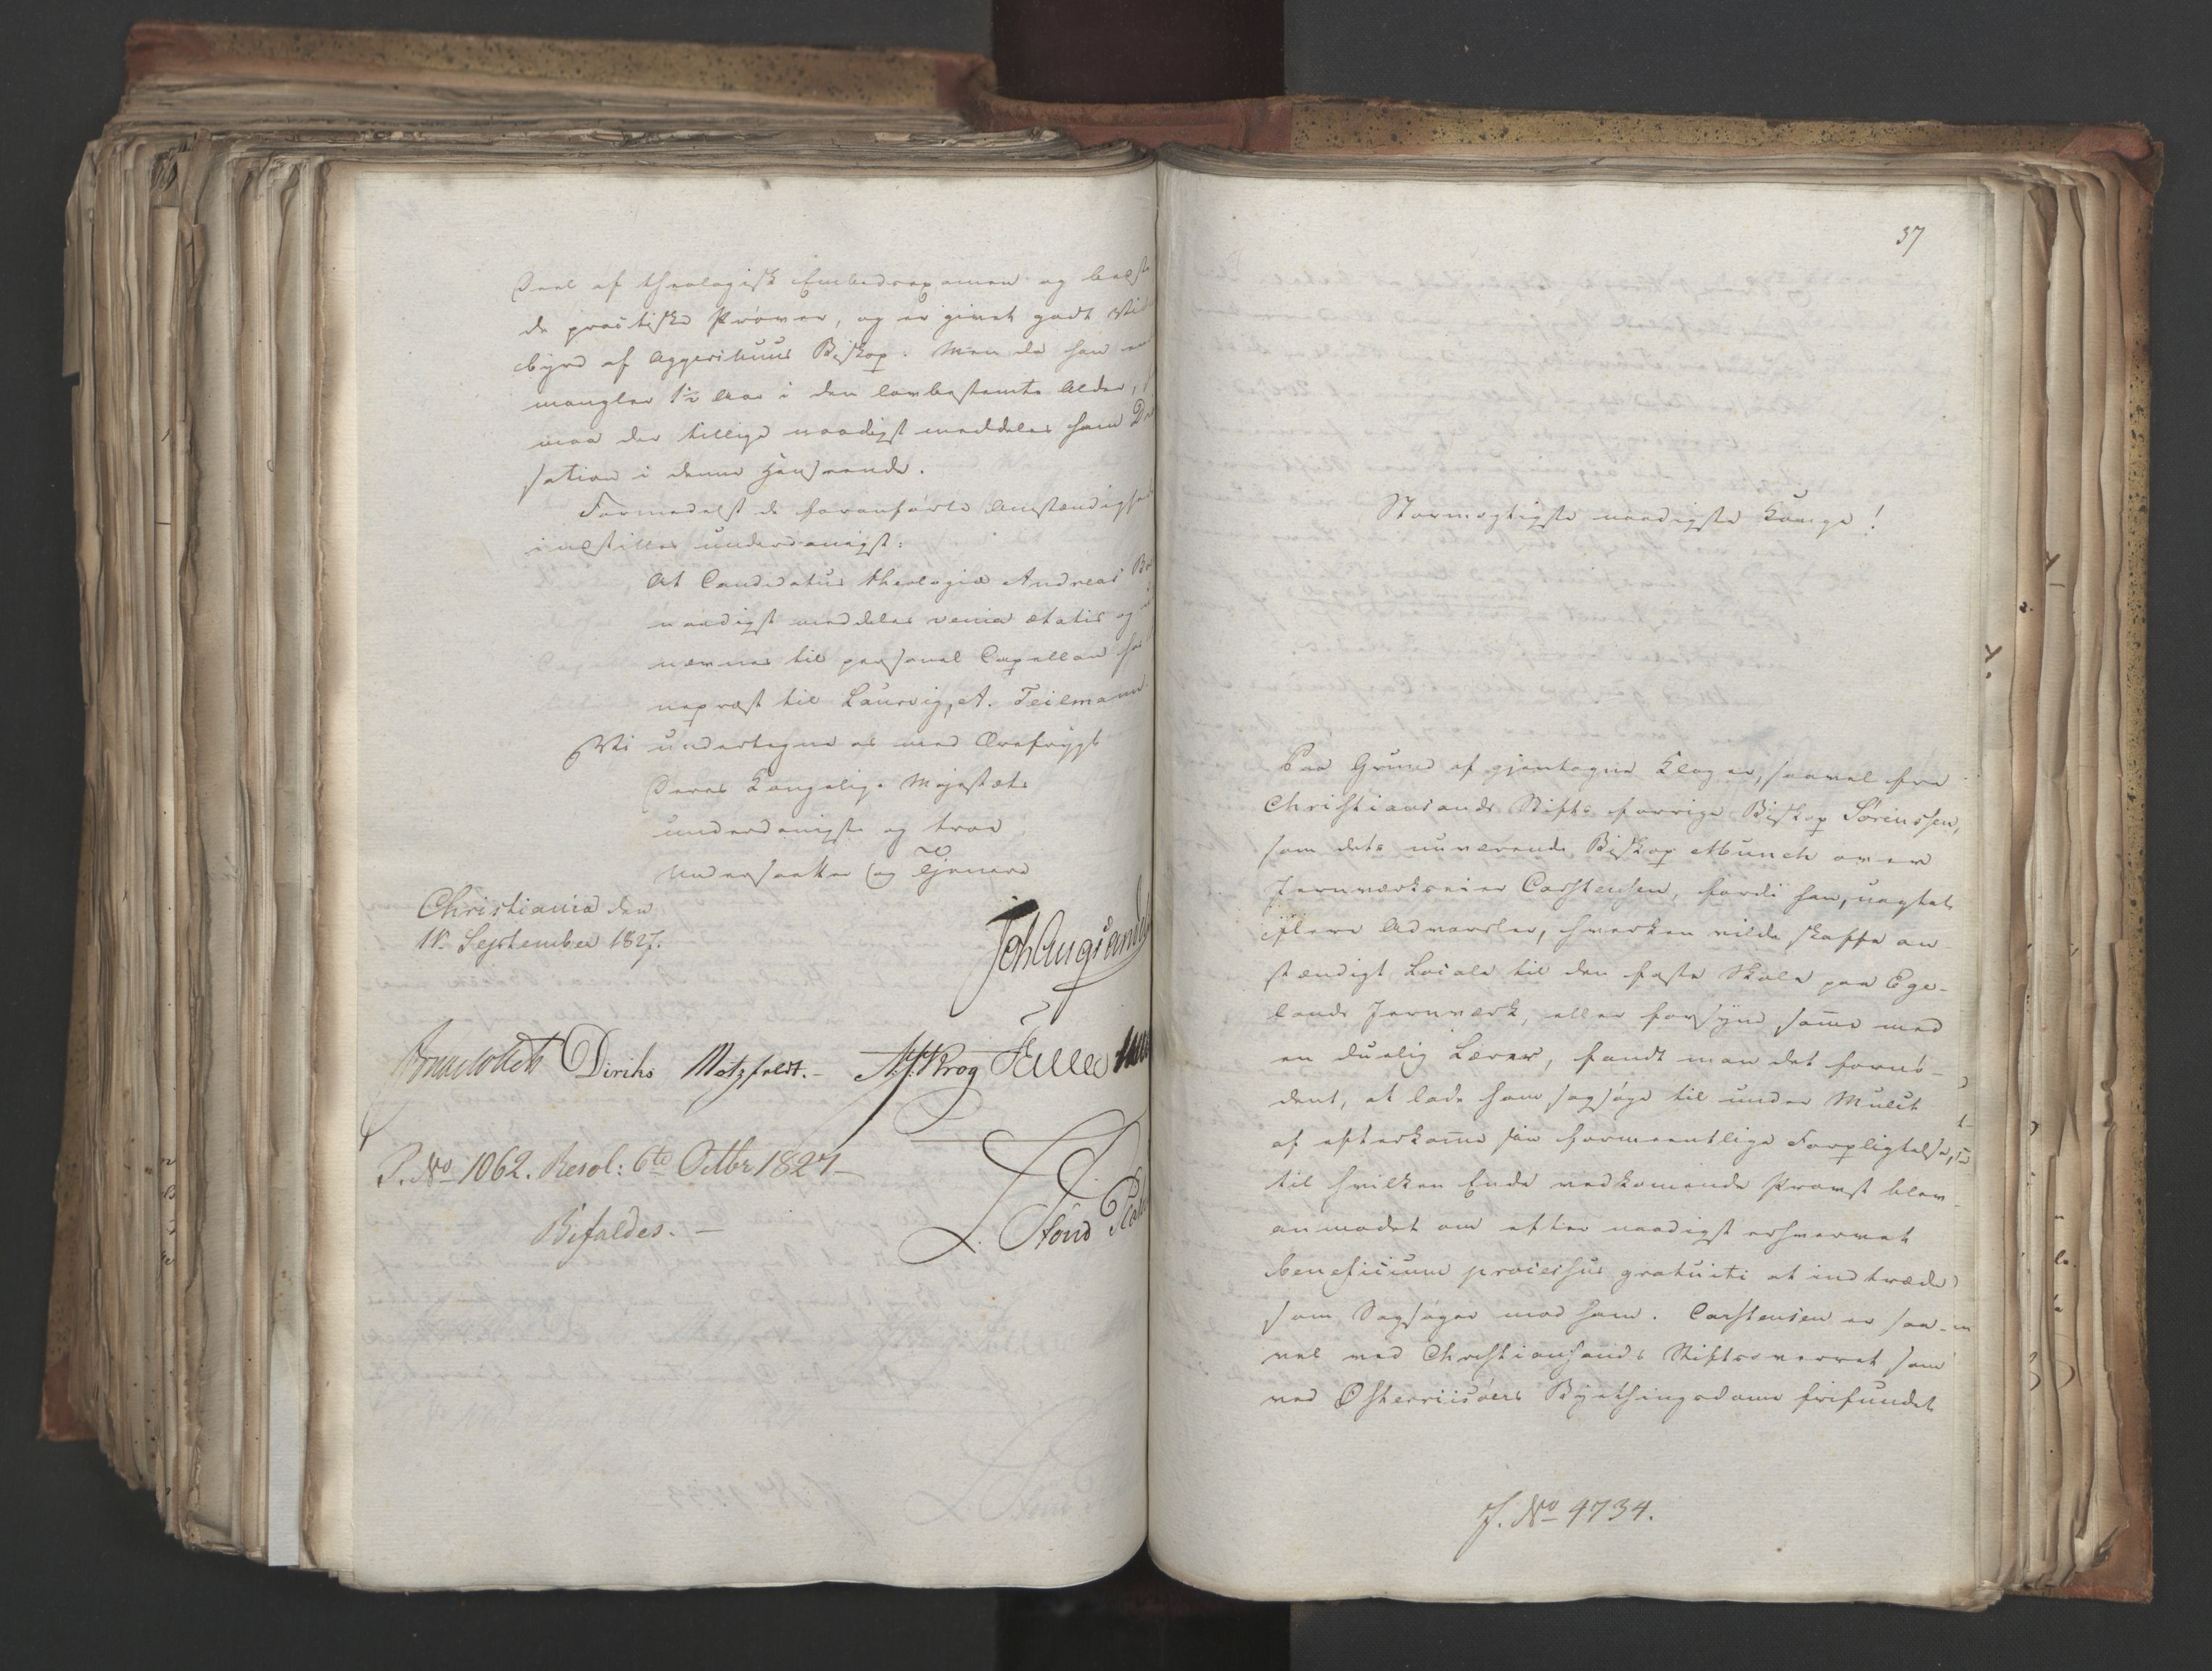 Deel af theologisk Embedsexamen og begge
de practiske Prøver, og er givet godt Vid
byrd af Aggershuus Biskop. Men da han
mangler 1½ Aar i den lovbestemte Alder,
maa der tillige naadigst meddeles ham
sation i denne Henseende.
Formedelst de foranførte Omstændighed
indstilles underdanigst:
At Candidatus theologiæ Andreas
naadigst meddeles venia ætatis og
nævnes til personel Capellan for
nepræst til Laurvig, A. Teilmann.
Vi undertegne os med Ærefrygt
Deres Kongelige Majestæts
underdanigste og troe
Undersaatter og Tjenere
Christiania den
September 1827.
Joh Aug Sandels
Collett Diriks Motzfeldt.- Krog
P. No 1062. Resol: 6te Octbr 1827-
Bifaldes. -
37
Stormægtigste naadigste Konge!
Paa Grund af gjentagne Klager, saavel fra
Christiansands Stifts forrige Biskop Sørenssen,
som dets nuværende Biskop Munch over
Jernværkseier Carstensen, fordi han, uagtet
flere Advarsler, hverken vilde skaffe an-
stændigt Locale til den faste Skole paa Ege-
lands Jernværk, eller forsyne samme med
en duelig Lærer, fandt man det fornø-
dent, at lade ham sagsøge til under Mulct
at efterkomme sin formeentlige Forpligtelse,
til hvilken Ende vedkommende Provst blev
anmodet om efter naadigst erhvervet
beneficium processus gratuiti at indtræde
som Sagsøger mod ham. Carstensen er saa-
vel ved Christiansands Stiftsoverret som
ved Østerriisøers Byethingsdom frifundet
J. No 4734.